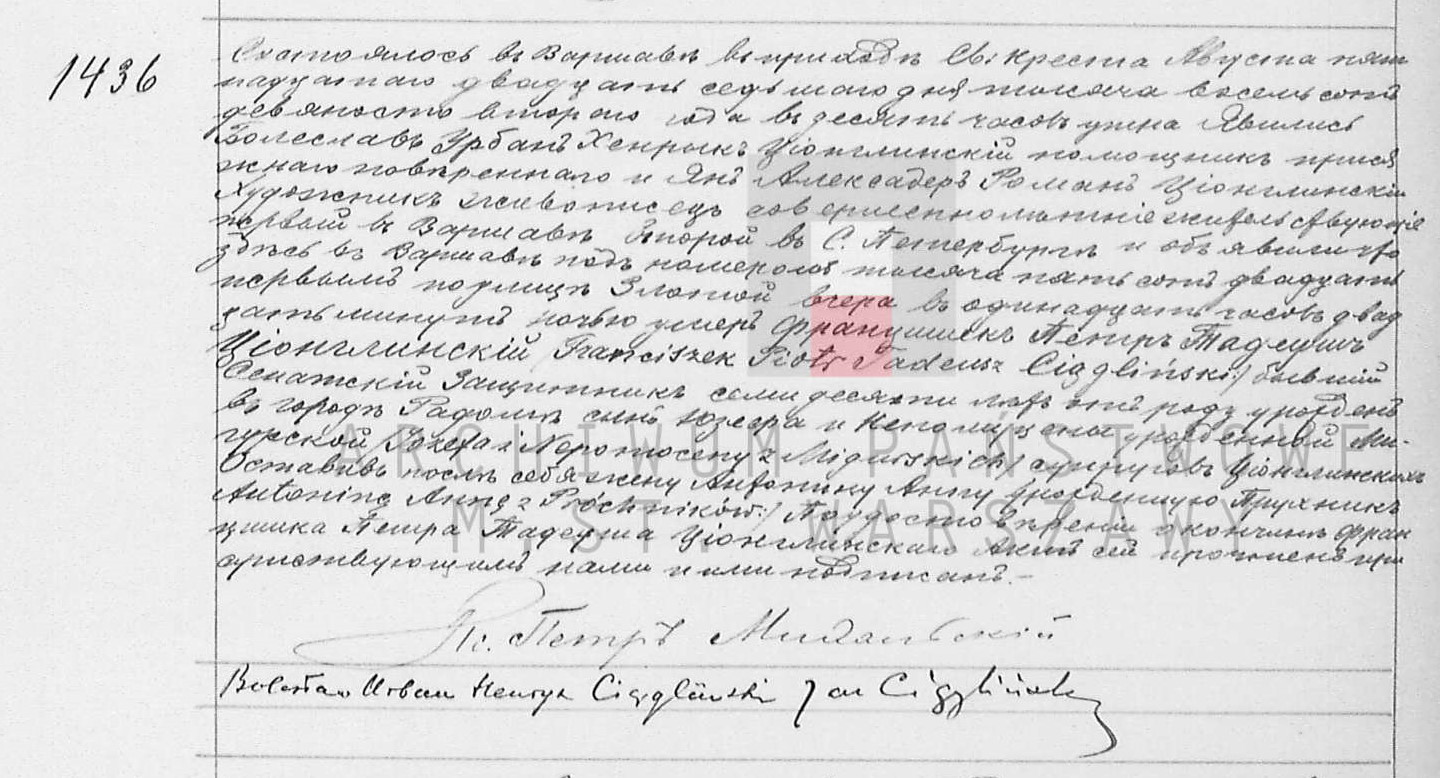 1436
Состоялось въ Варшавѣ въ приходѣ Св. Креста Августа пят
надцатаго двадцать седьмаго дня тысяча восемь сотъ
девяносто втораго года въ десять часовъ утра Явились
Болеславъ Урбанъ Хенрыкъ Ціонглинскій помощникъ прися
жнаго повѣреннаго и Янъ Алексадеръ Романъ Ціонглинскій
Художникъ живописецъ совершеннолѣтніе жительствующіе
первый въ Варшавѣ второй въ С. Петербургѣ и объявили что
здѣсь въ Варшавѣ подъ номеромъ тысяча пять сотъ двадцать
первымъ по улицѣ Злотой вчера въ одинадцать часовъ двад
цать минутъ ночью умеръ Францишекъ Петръ Тадеушъ
Ціонглинскій /Franciszek Piotr Tadeusz Ciągliński:/ бывшій
Сенатскій Защитникъ семидесяти лѣтъ отъ роду урожденъ
въ городѣ Радомѣ сынъ Юзефа и Непомуцены урожденной Ми-
гурской /Józefa i Nepomoceny z Migurskich/ супруговъ Ціонглинскихъ
Оставивъ послѣ себя жену Антонину Анну урожденную Прухникъ
Antoninę Annę z Próchników:/ По удостовѣреніи о кончинѣ Фран
цишка Петра Тадеуша Ціонглинскаго Актъ сей прочтенъ при
сутствующимъ нами и ими подписанъ.-
Кс. Петръ
Bolesław Urban Henryk Ciągliński Jan Ciągliński
ARCHIWUM PAŃSTWOWE
M. ST. WARSZAWY